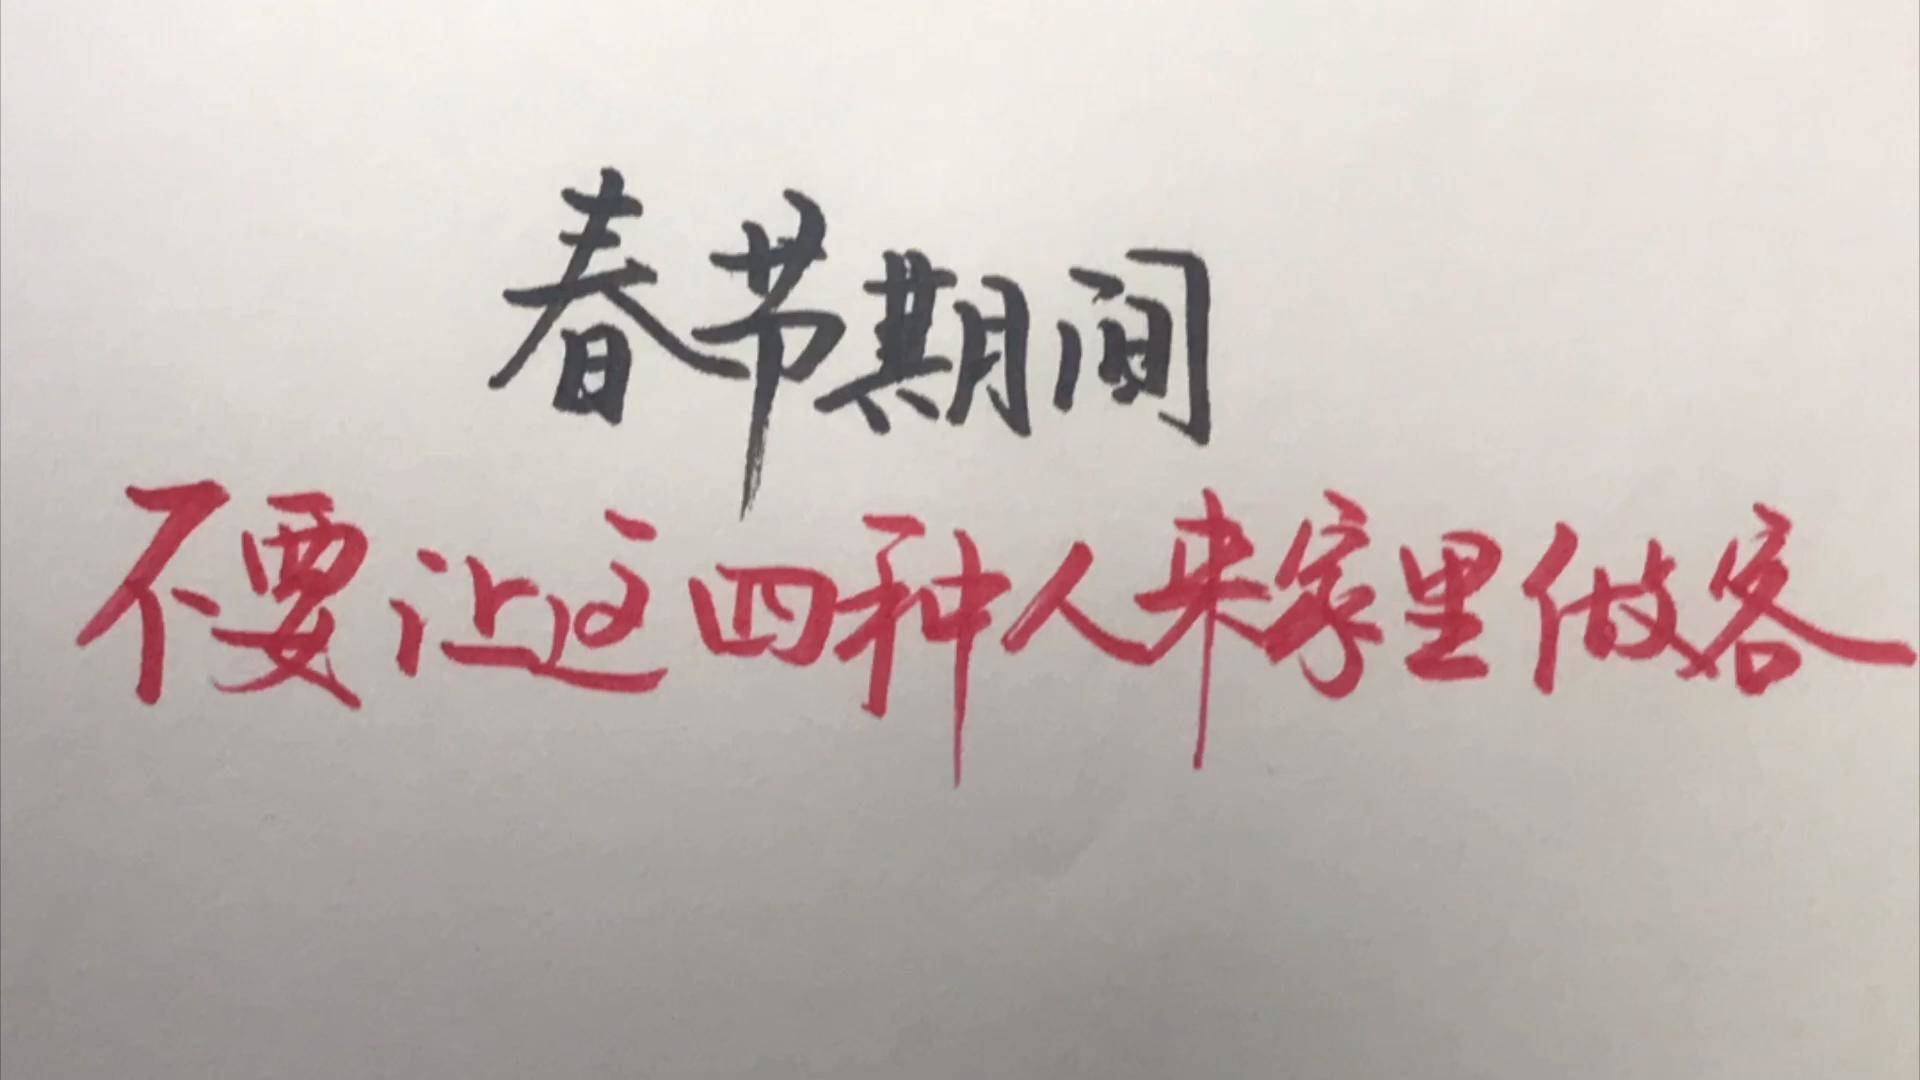 春节期间
不要让这四种人来家里做客